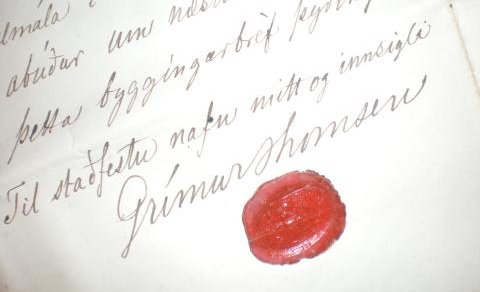 lmála
ábúðar um næst
þetta byggíngarbréf þýðíng
Til staðfestu nafn mitt og innsigli
Grímur Thomsen